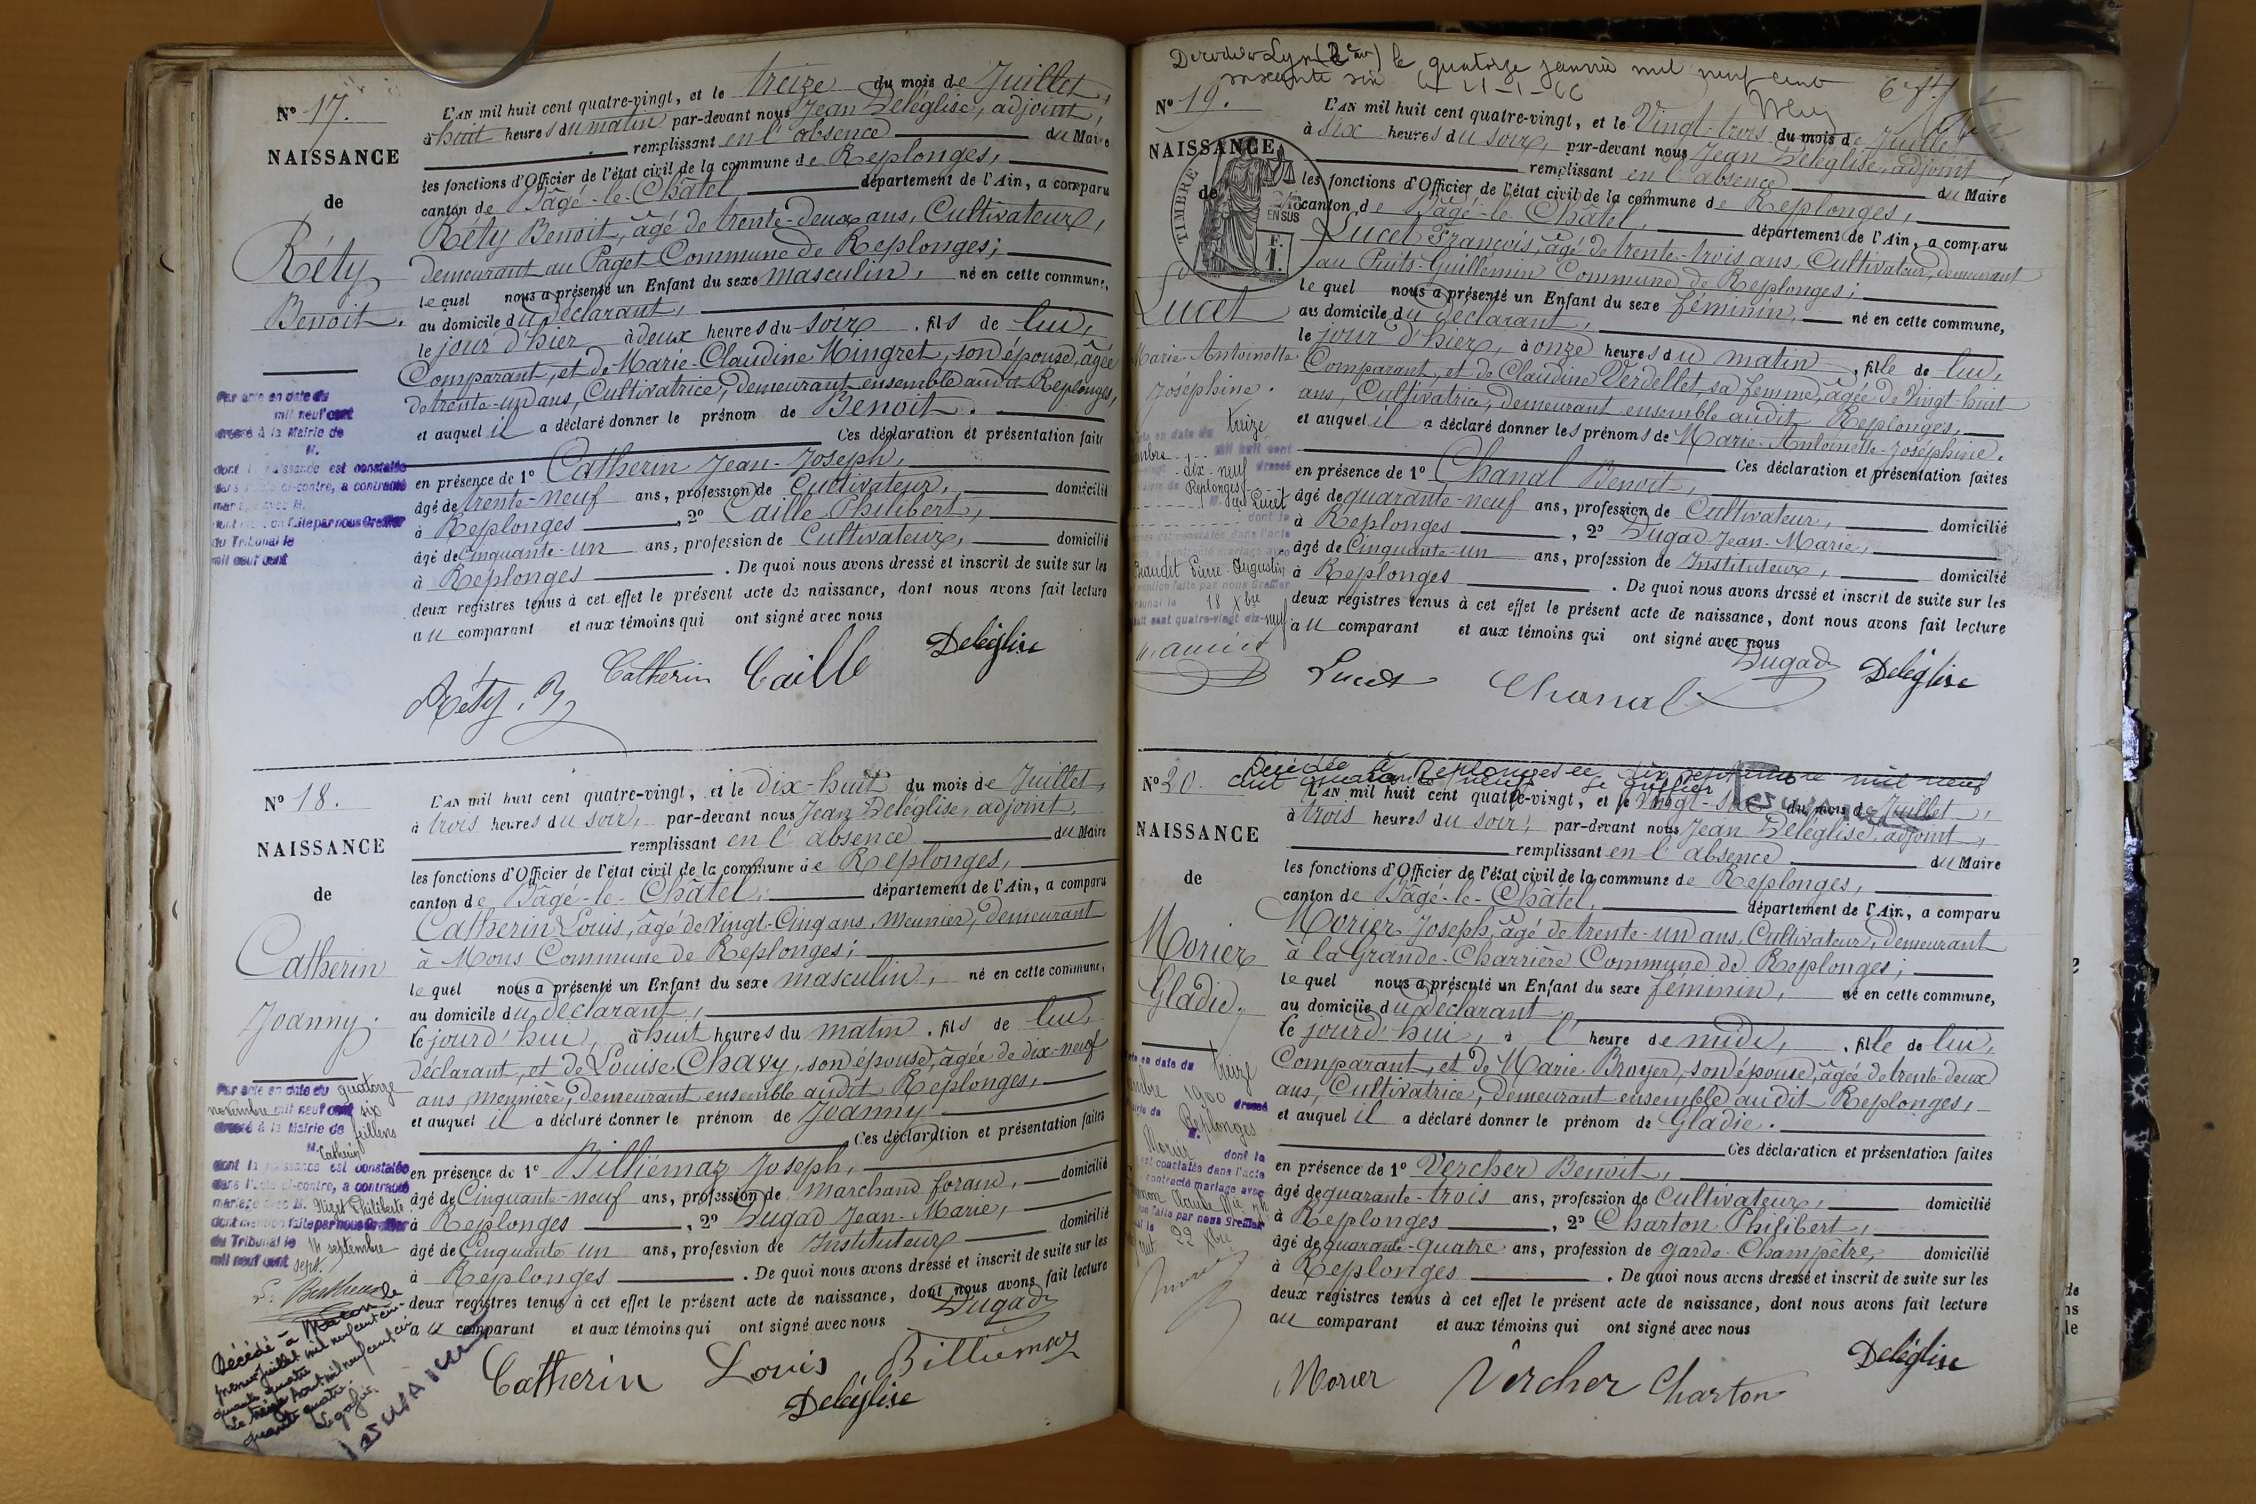 N° 17.
NAISSANCE
de
Réty
Benoit.
Par acte en date du
mil neuf cent
dressé à la Mairie de
M.
dont la naissance est constatée
dans l'acte ci-contre, a contracté
mariage avec M.
dont mention faite par nous Greffier
du Tribunal le
mil neuf cent
L'AN mil huit cent quatre-vingt, et le treize du mois de Juillet,
à huit heures du matin par-devant nous Jean Deléglise, adjoint,
remplissant en l'absence du Maire
les fonctions d'Officier de l'état civil de la commune de Replonges,
canton de Bâgé-le-Châtel département de l'Ain, a comparu
Réty Benoit, âgé de trente-deux ans, Cultivateur,
demeurant au Paget Commune de Replonges;
lequel nous a présenté un Enfant du sexe masculin, né en cette commune,
au domicile du déclarant,
le jour d'hier à deux heures du soir, fils de lui,
Comparant, et de Marie-Claudine Mingret, son épouse, âgée
de trente-un ans, Cultivatrice, demeurant ensemble audit Replonges,
et auquel il a déclaré donner le prénom de Benoit.
Ces déclaration et présentation faites
en présence de 1° Catherin Jean-Joseph,
âgé de trente-neuf ans, profession de Cultivateur, domicilié
à Replonges, 2° Caille Philibert,
âgé de Cinquante-un ans, profession de Cultivateur, domicilié
à Replonges. De quoi nous avons dressé et inscrit de suite sur les
deux registres tenus à cet effet le présent acte de naissance, dont nous avons fait lecture
au comparant et aux témoins qui ont signé avec nous
Réty B Catherin Caille Deléglise
N° 18.
NAISSANCE
de
Catherin
Joanny.
Par acte en date du quatorze
novembre mil neuf cent six
dressé à la Mairie de Feillens
M. Catherin
dont la naissance est constatée
dans l'acte ci-contre, a contracté
mariage avec M. Nizet Philiberte
dont mention faite par nous Greffier
du Tribunal le 14 septembre
mil neuf cent sept.
Décédé à Macon le
premier juillet mil neuf cent cin-
quante quatre.
Le treize aout mil neuf cent cin
quante quatre.
Le greffier.
L'AN mil huit cent quatre-vingt, et le dix-huit du mois de Juillet,
à trois heures du soir, par-devant nous Jean Deléglise, adjoint,
remplissant en l'absence du Maire
les fonctions d'Officier de l'état civil de la commune de Replonges,
canton de Bâgé-le-Châtel, département de l'Ain, a comparu
Catherin Louis, âgé de Vingt-Cinq ans, meunier, demeurant
à Mons Commune de Replonges;
lequel nous a présenté un Enfant du sexe masculin, né en cette commune,
au domicile du déclarant,
le jourd'hui, à huit heures du matin, fils de lui,
déclarant, et de Louise Chavy, son épouse, âgée de dix-neuf
ans meunière, demeurant ensemble audit Replonges,
et auquel il a déclaré donner le prénom de Joanny
Ces déclaration et présentation faites
en présence de 1° Billiémaz Joseph,
âgé de Cinquante-neuf ans, profession de marchand forain, domicilié
à Replonges, 2° Dugad Jean-Marie,
âgé de Cinquante un ans, profession de Instituteur domicilié
à Replonges. De quoi nous avons dressé et inscrit de suite sur les
deux registres tenus à cet effet le présent acte de naissance, dont nous avons fait lecture
au comparant et aux témoins qui ont signé avec nous
Dugad
Catherin Louis Billiémaz
Deléglise
le quatorze janvier mil neuf cent
soixante six
N° 19.
NAISSANCE
de
TIMBRE
EN SUS
F.
1.
Lucet
Marie-Antoinette
Joséphine.
en date du treize
mil huit cent
dix-neuf dressé
Replonges
M. Lucet
dont la
Pierre-Augustin
18 Xbre
huit cent quatre-vingt dix-neuf
L'AN mil huit cent quatre-vingt, et le Vingt-trois du mois de Juillet,
à six heures du soir, par-devant nous Jean Deléglise, adjoint,
remplissant en l'absence du Maire
les fonctions d'Officier de l'état civil de la commune de Replonges,
canton de Bâgé-le-Châtel, département de l'Ain, a comparu
Lucet François, âgé de trente-trois ans, Cultivateur, demeurant
au Puits-Guillemin Commune de Replonges;
lequel nous a présenté un Enfant du sexe féminin, né en cette commune,
au domicile du déclarant,
le jour d'hier, à onze heures du matin, fille de lui,
Comparant, et de Claudine Verdellet, sa femme, âgée de Vingt-huit
ans, Cultivatrice, demeurant ensemble audit Replonges,
et auquel il a déclaré donner les prénoms de Marie-Antoinette-Joséphine.
Ces déclaration et présentation faites
en présence de 1° Chanal Benoit,
âgé de quarante-neuf ans, profession de Cultivateur, domicilié
à Replonges, 2° Dugad Jean-Marie,
âgé de Cinquante-un ans, profession de Instituteur, domicilié
à Replonges. De quoi nous avons dressé et inscrit de suite sur les
deux registres tenus à cet effet le présent acte de naissance, dont nous avons fait lecture
au comparant et aux témoins qui ont signé avec nous
Lucet Chanal Dugad Deléglise
Décédée à Replonges le six septembre mil neuf
cent quarante neuf. Le greffier
N° 20.
NAISSANCE
de
Morier
Gladie.
en date du treize
1900 dressé
Replonges
M.
Morier dont la
est constatée dans l'acte
contracté mariage avec
Claude
faite par nous Greffier
22 Xbre
L'AN mil huit cent quatre-vingt, et le Vingt-six du mois de Juillet,
à trois heures du soir, par-devant nous Jean Deléglise, adjoint,
remplissant en l'absence du Maire
les fonctions d'Officier de l'état civil de la commune de Replonges,
canton de Bâgé-le-Châtel, département de l'Ain, a comparu
Morier Joseph, âgé de trente-un ans, Cultivateur, demeurant
à la Grande-Charrière Commune de Replonges;
lequel nous a présenté un Enfant du sexe féminin, né en cette commune,
au domicile du déclarant,
le jourd'hui, à l'heure de midi, fille de lui,
Comparant, et de Marie Broyer, son épouse, âgée de trente-deux
ans, Cultivatrice, demeurant ensemble audit Replonges,
et auquel il a déclaré donner le prénom de Gladie.
Ces déclaration et présentation faites
en présence de 1° Vercher Benoit,
âgé de quarante-trois ans, profession de Cultivateur, domicilié
à Replonges, 2° Charton Philibert,
âgé de quarante-quatre ans, profession de garde-Champêtre, domicilié
à Replonges. De quoi nous avons dressé et inscrit de suite sur les
deux registres tenus à cet effet le présent acte de naissance, dont nous avons fait lecture
au comparant et aux témoins qui ont signé avec nous
Morier Vercher Charton Deléglise